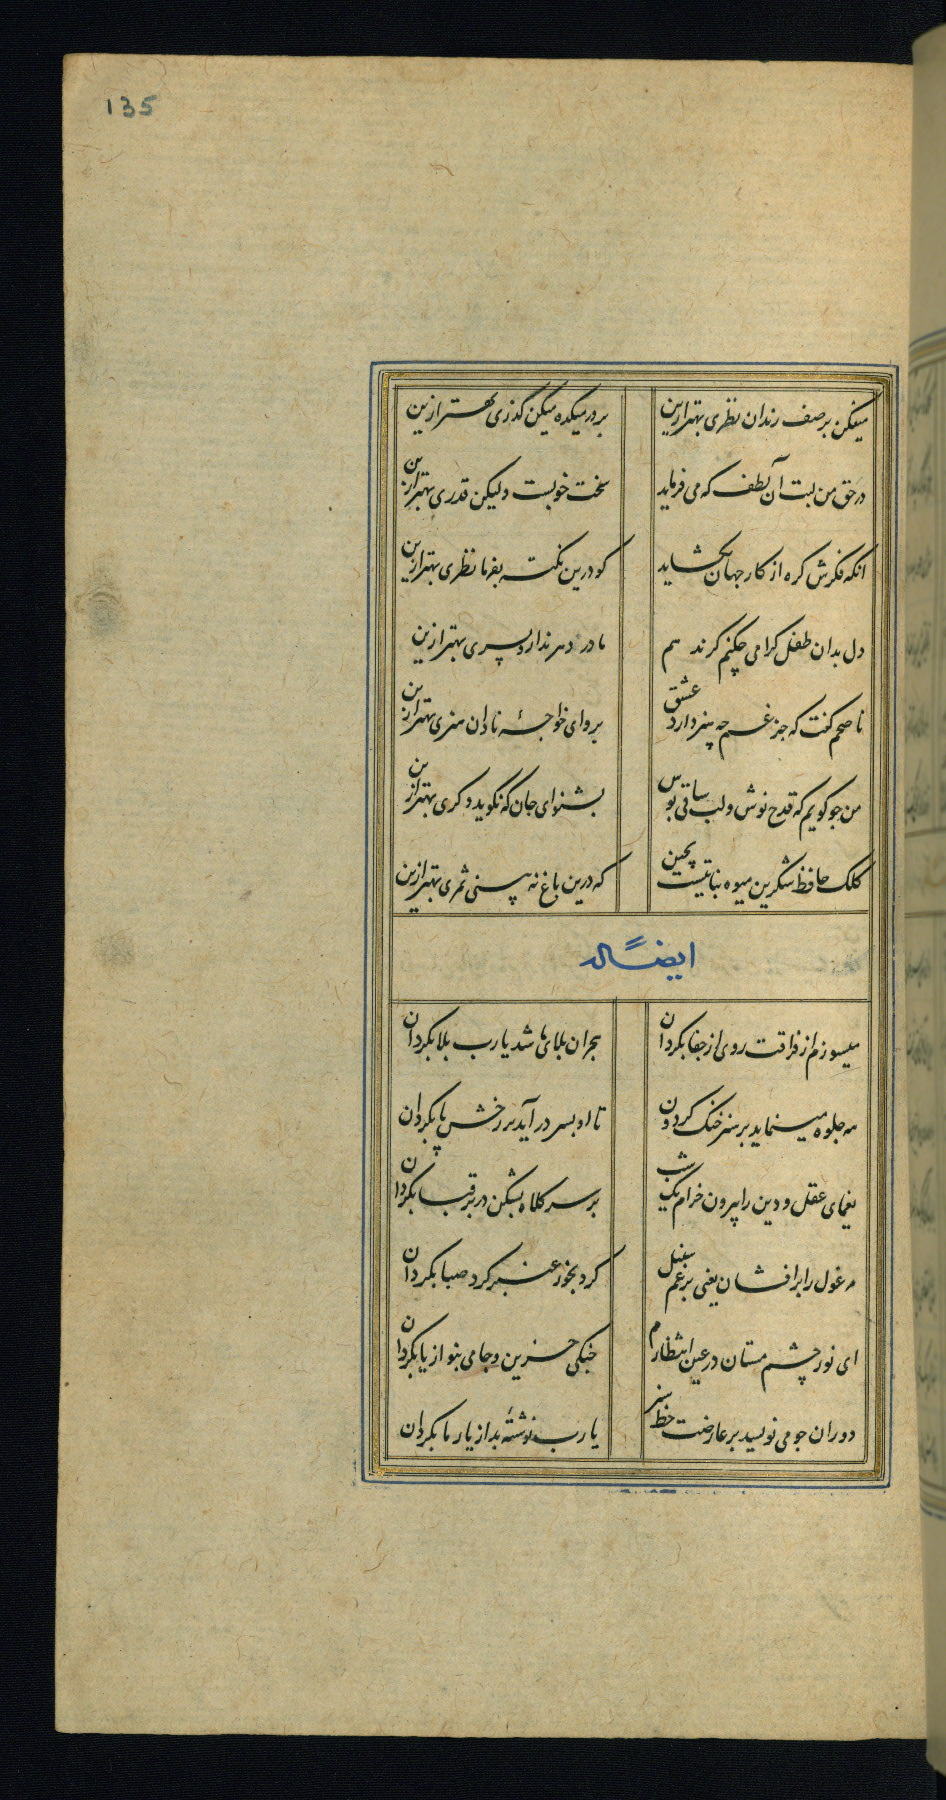 135
میفکن بر صف رندان نظری بهتر ازین
بر در میکده میکن گذری بهتر ازین
در حق من لبت آن لطف که می فرماید
سخت خوبست ولیکن قدری بهتر ازین
انکه فکرش کره از کار جهان بگشاید
کو درین نکته بفرما نظری بهتر ازین
دل بدان طفل کرامی چکنم کر ندهم
مادر دهر ندارد پسری بهتر ازین
ناصحم کفت که جز غم چه هنر دارد عشق
برو ای خواجهٔ نادان هنری بهتر ازین
من جو کویم که قدح نوش و لب ساقی بوس
بشنو ای جان که نکوید دکری بهتر ازین
کلک حافظ شکرین میوه نباتیست بچین
که درین باغ نه بینی ثمری بهتر ازین
ایضاً له
میسوزم از فراقت روی از جفا بکردان
هجران بلای ما شد یارب بلا بکردان
مه جلوه مینماید بر سبز خنک کردون
تا او بسر در آید بر رخش پا بکردان
یغمای عقل و دین را بیرون خرام یک شب
بر سر کلاه بشکن در بر قبا بکردان
مرغول را برافشان یعنی برغم سنبل
کرد بخور عنبر کرد صبا بکردان
ای نور چشم مستان در عین انتظارم
چنکی حزین و جامی بنواز یا بکردان
دوران جو می نویسد بر عارضت خط سبز
یارب نوشتهٔ بد از یار ما بکردان